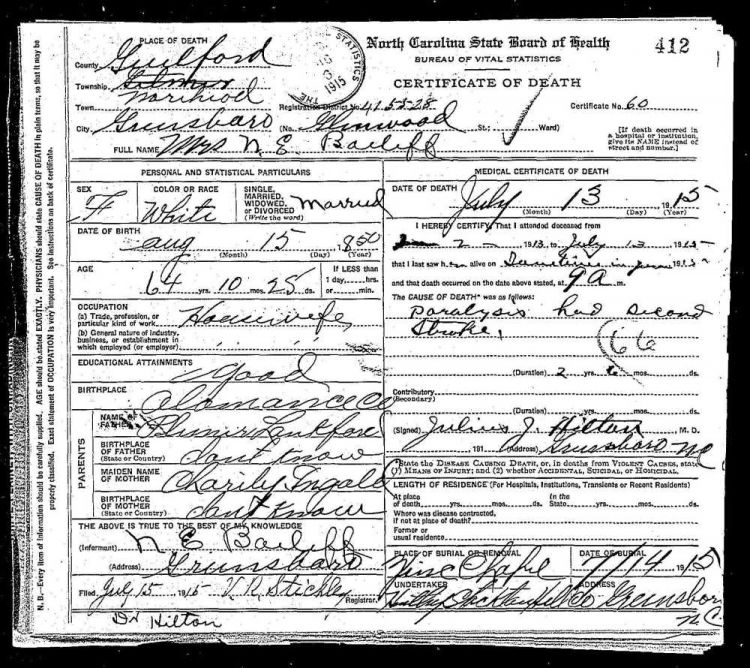 PLACE OF DEATH
County Guilford
Township Gilmer
Town
City Grunsbaro
North Carolina State Board of Health 412
BUREAU OF VITAL STATISTICS
CERTIFICATE OF DEATH
STATISTICS
1915
THE
Registration District No. 4155-28 Certificate No. 60
(No. Glinwood St.; Ward)
[If death occurred in a hospital or institution, give its NAME instead of street and number.]
FULL NAME Mrs N. E. Bailiff
PERSONAL AND STATISTICAL PARTICULARS
SEX F
COLOR OR RACE White
SINGLE, MARRIED, WIDOWED, OR DIVORCED (Write the word) Married
DATE OF BIRTH
aug 15 1850
(Month) (Day) (Year)
AGE
64 yrs. 10 mos. 25 ds.
If LESS than
1 day,....hrs.
or ....min.
OCCUPATION
(a) Trade, profession, or particular kind of work Housewife
(b) General nature of industry, business, or establishment in which employed (or employer)
EDUCATIONAL ATTAINMENTS good
BIRTHPLACE
PARENTS
NAME OF FATHER
BIRTHPLACE OF FATHER (State or Country) Dont Know
MAIDEN NAME OF MOTHER Charity
BIRTHPLACE OF MOTHER (State or Country) Dont Know
THE ABOVE IS TRUE TO THE BEST OF MY KNOWLEDGE
(Informant) N E Bailiff
(Address) Grunsbaro
Filed July 15 1915 V. R. Stickley Registrar.
Dr Hilton
MEDICAL CERTIFICATE OF DEATH
DATE OF DEATH
July 13 1915
(Month) (Day) (Year)
I HEREBY CERTIFY, That I attended deceased from
2 - 1913 to July 13 1915
that I last saw h alive on 1915
and that death occurred on the date above stated, at 9 a m.
The CAUSE OF DEATH* was as follows:
Paralysis had second
Stroke,
66
(Duration) 2 yrs. 6 mos. ds.
Contributory
(Secondary)
(Duration) yrs. mos. ds.
(Signed) Julius J. Hilton M. D.
191 (Address) Grunsboro NC
*State the DISEASE CAUSING DEATH, or, in deaths from VIOLENT CAUSES, state
(1) MEANS OF INJURY; and (2) whether ACCIDENTAL, SUICIDAL, or HOMICIDAL.
LENGTH OF RESIDENCE (For Hospitals, Institutions, Transients or Recent Residents)
At place of death yrs. mos. ds. In the State yrs. mos. ds.
Where was disease contracted,
if not at place of death?
Former or
usual residence
PLACE OF BURIAL OR REMOVAL DATE OF BURIAL
7/14 1915
UNDERTAKER ADDRESS
Greensboro
N.C.
N. B.—Every item of information should be carefully supplied. AGE should be stated EXACTLY. PHYSICIANS should state CAUSE OF DEATH in plain terms, so that it may be
properly classified. Exact statement of OCCUPATION is very important. See instructions on back of certificate.